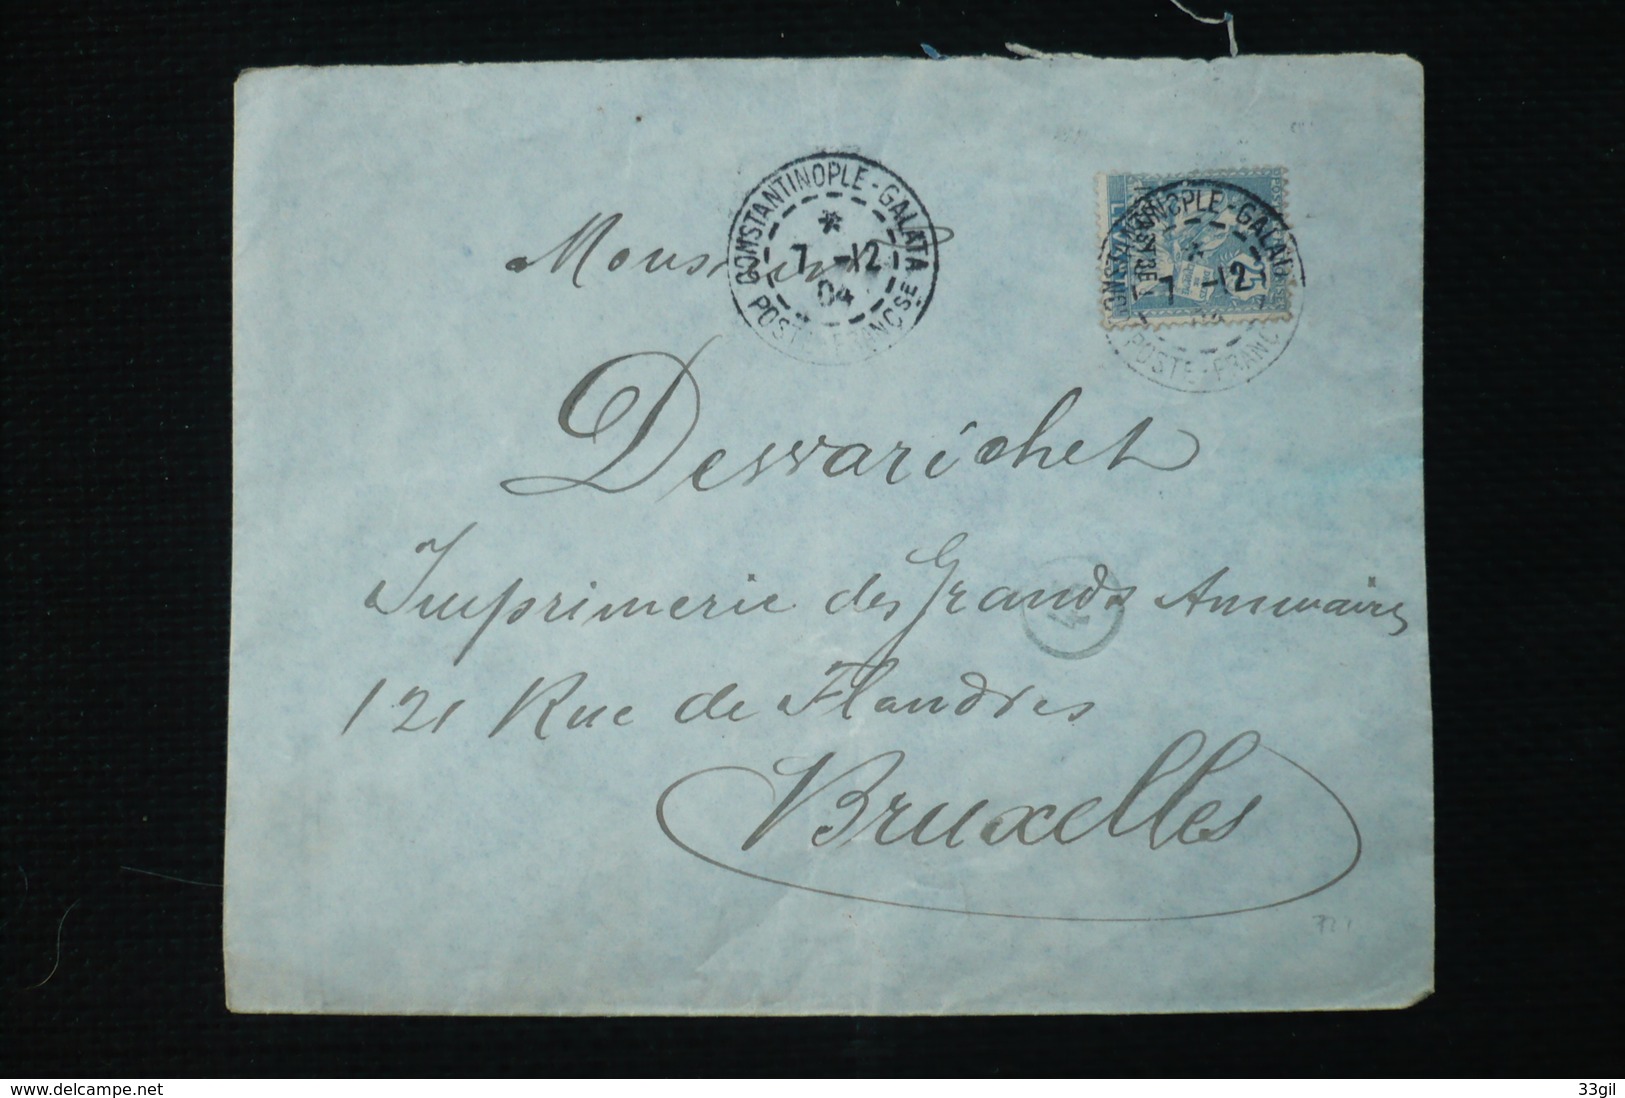 CONSTANTINOPLE-GALATA
*
7 -12
04
POSTE FRANÇSE
CONSTANTINOPLE-GALATA
*
7 -12
04
POSTE-FRANÇ
25
Monsieur
Desvarichet
Imprimerie des Grands Annuaires
121 Rue de Flandres
Bruxelles
delcampe.net
33gil